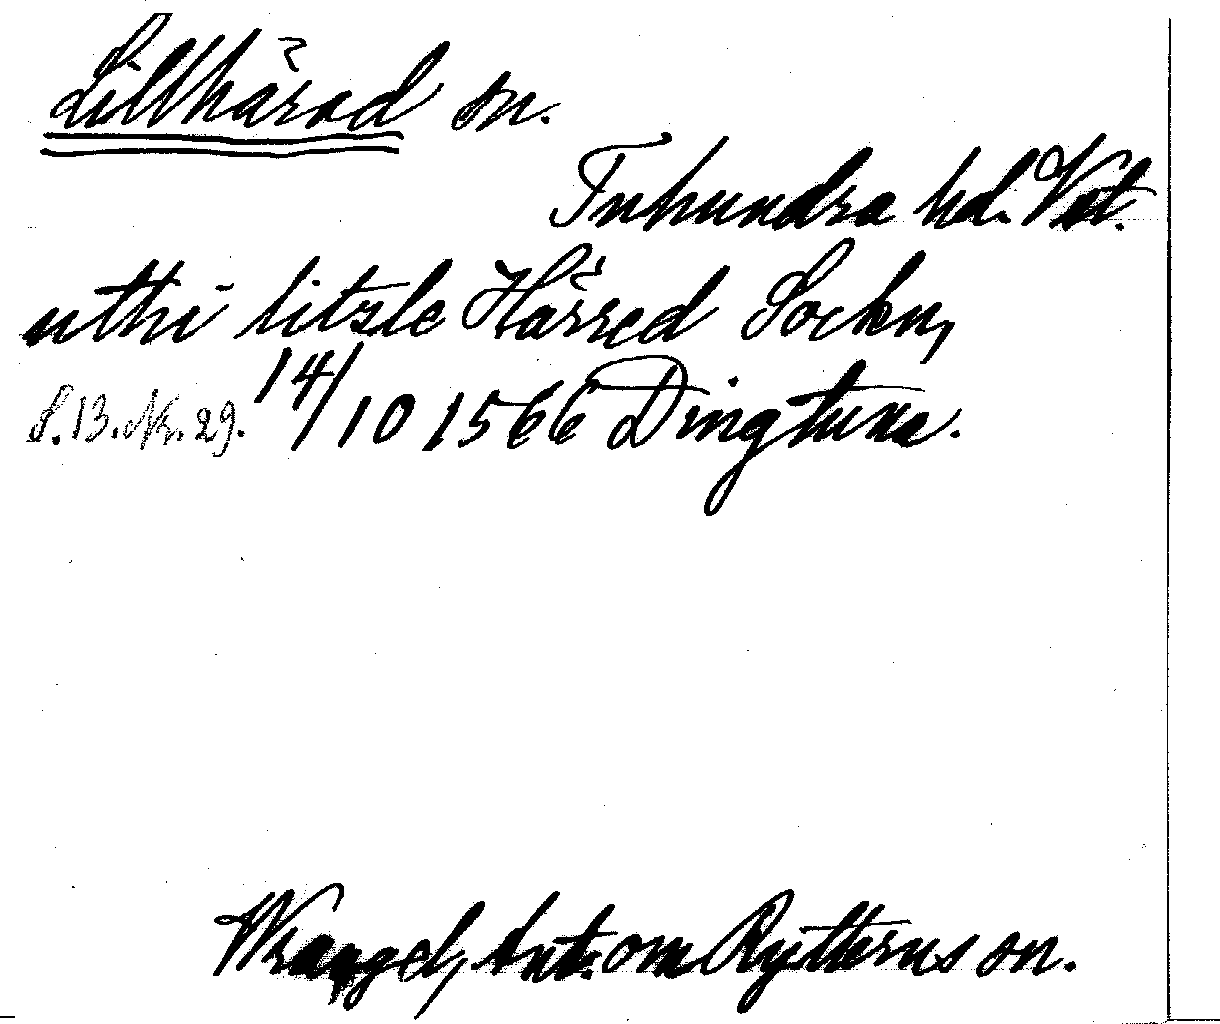 Lillhärad sn.
Tuhundra hd. Vstl.
uthi litzle Härred Sockn,
S. 13. Nr. 29. 14/10 1566 Dingtuna.
Wrangel, Ant. om Rytterns sn.